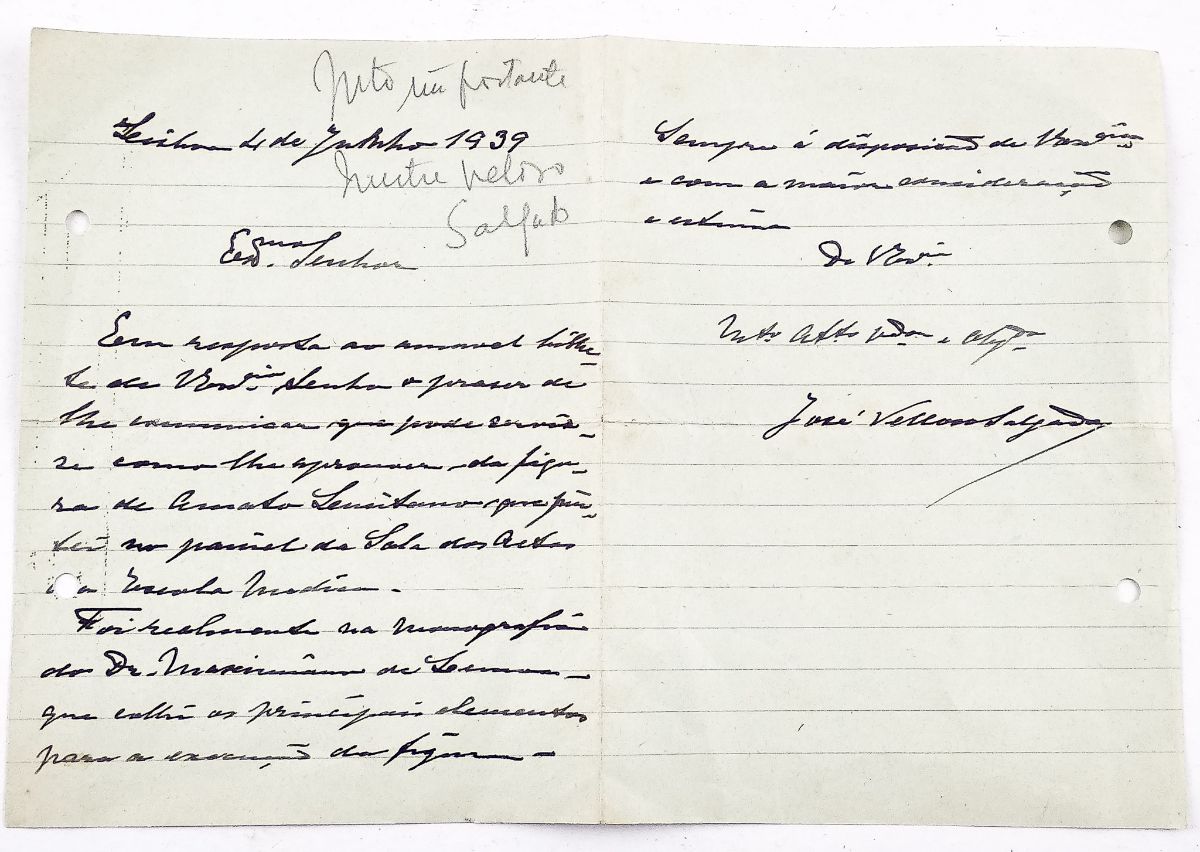 Mto importante
Lisboa 4 de Julho 1939
Mestre Veloso
Salgado
Exmo. Senhor
Em resposta ao amavel bilhe-
te de Vexcia. tenho o prazer de
lhe comunicar que pode servir-
se como lhe aprouver da figu-
ra de Amato Lusitano que pin-
tei no painel da Sala dos Actos
da Escola Medica.
Foi realmente na monografia
do Dr. Maximiano de Lemos
que colhi os principais elementos
para a execução da figura -
Sempre á disposição de Vexcia
e com a maior consideração
e estima
De Vexcia.
Mto Atto Vdor e Obgdo
José Velloso Salgado